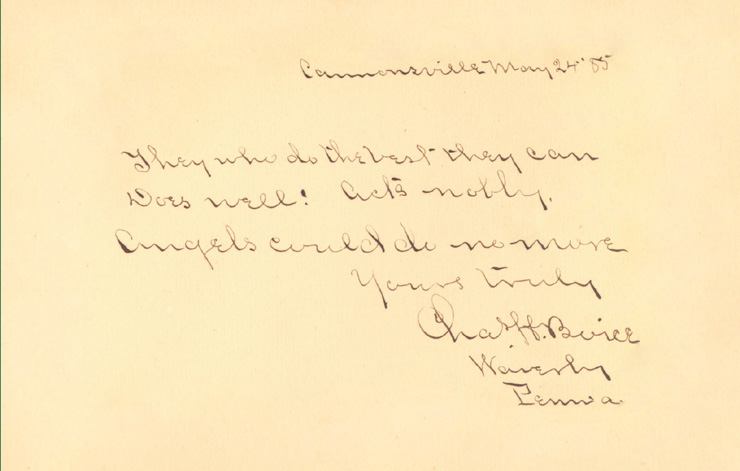 Cannonsville May 24 '85
They who do the best they can
Does well! Acts nobly.
Angels could do no more
Yours truly
Chas H. Boice
Waverly
Penna